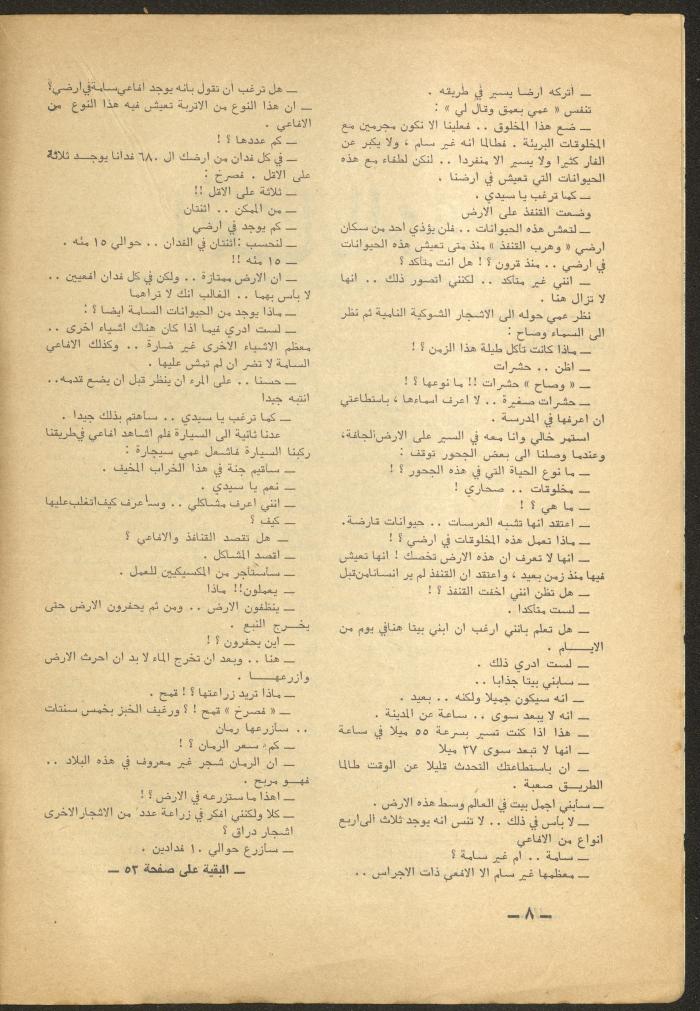 ـ أتركه أرضا يسير في طريقه .
تنفس « عمي بعمق وقال لي » :
ـ ضع هذا المخلوق .. فعلينا الا نكون مجرمين مع
المخلوقات البريئة . فطالما انه غير سام ، ولا يكبر عن
الفار كثيرا ولا يسير الا منفردا .. لنكن لطفاء مع هذه
الحيوانات التي تعيش في ارضنا .
ـ كما ترغب يا سيدي .
وضعت القنفذ على الارض
ـ لتعش هذه الحيوانات .. فلن يؤذي احد من سكان
ارضي « وهرب القنفذ » منذ متى تعيش هذه الحيوانات
في ارضي .. منذ قرون ؟ ! هل انت متأكد ؟
ـ انني غير متأكد .. لكنني اتصور ذلك .. انها
لا تزال هنا .
نظر عمي حوله الى الاشجار الشوكية النامية ثم نظر
الى السماء وصاح :
ـ ماذا كانت تأكل طيلة هذا الزمن ؟ !
ـ اظن .. حشرات
ـ « وصاح » حشرات !! ما نوعها ؟ !
ـ حشرات صغيرة .. لا اعرف اسماءها ، باستطاعتي
ان اعرفها في المدرسة .
استمر خالي وانا معه في السير على الارض الجافة،
وعندما وصلنا الى بعض الجحور توقف :
ـ ما نوع الحياة التي في هذه الجحور ؟ !
ـ مخلوقات .. صحاري !
ـ ما هي ؟ !
ـ اعتقد انها تشبه العرسات .. حيوانات قارضة.
ـ ماذا تعمل هذه المخلوقات في ارضي ؟ !
ـ انها لا تعرف ان هذه الارض تخصك ! انها تعيش
فيها منذ زمن بعيد ، واعتقد ان القنفذ لم ير انسانا من قبل
ـ هل تظن انني اخفت القنفذ ؟ !
ـ لست متأكدا .
ـ هل تعلم بانني ارغب ان ابني بيتا هنا في يوم من
الايـــام .
ـ لست ادري ذلك .
ـ سابني بيتا جذابا ..
ـ انه سيكون جميلا ولكنه .. بعيد .
ـ انه لا يبعد سوى .. ساعة عن المدينة .
ـ هذا اذا كنت تسير بسرعة ٥٥ ميلا في ساعة
ـ انها لا تبعد سوى ٣٧ ميلا
ـ ان باستطاعتك التحدث قليلا عن الوقت طالما
الطريــق صعبة .
ـ سابني اجمل بيت في العالم وسط هذه الارض .
ـ لا بأس في ذلك .. لا تنس انه يوجد ثلاث الى اربع
انواع من الافاعي
ـ سامة .. ام غير سامة ؟
ـ معظمها غير سام الا الافعى ذات الاجراس ..
ـ هل ترغب ان تقول بانه يوجد افاعي سامة في ارضي؟
ـ ان هذا النوع من الاتربة تعيش فيه هذا النوع من
الافاعي .
ـ كم عددها ؟ !
ـ في كل فدان من ارضك ال ٦٨٠ فدانا يوجــد ثلاثة
على الاقل . فصرخ :
ـ ثلاثة على الاقل !!
ـ من الممكن .. اثنتان
ـ كم يوجد في ارضي
ـ لنحسب : اثنتان في الفدان .. حوالي ١٥ مئه .
ـ ١٥ مئه !!
ـ ان الارض ممتازة .. ولكن في كل فدان افعيين ..
لا بأس بهما .. الغالب انك لا تراهما
ـ ماذا يوجد من الحيوانات السامة ايضا ؟ :
ـ لست ادري فيما اذا كان هناك اشياء اخرى ..
معظم الاشياء الاخرى غير ضارة .. وكذلك الافاعي
السامة لا تضر ان لم تمش عليها .
ـ حسنا .. على المرء ان ينظر قبل ان يضع قدمه..
انتبه جيدا
ـ كما ترغب يا سيدي .. سأهتم بذلك جيدا .
عدنا ثانية الى السيارة فلم اشاهد افاعي في طريقنا
ركبنا السيارة فاشعل عمي سيجارة :
ـ ساقيم جنة في هذا الخراب المخيف .
ـ نعم يا سيدي .
ـ انني اعرف مشاكلي .. وسأعرف كيف اتغلب عليها
ـ كيف ؟
ـ هل تقصد القنافذ والافاعي ؟
ـ اقصد المشاكل .
ـ سأستأجر من المكسيكيين للعمل .
ـ يعملون!! ماذا
ـ ينظفون الارض .. ومن ثم يحفرون الارض حتى
يخـــرج النبع .
ـ اين يحفرون ؟ !
ـ هنا .. وبعد ان تخرج الماء لا بد ان احرث الارض
وازرعهــــا .
ـ ماذا تريد زراعتها ؟ ! قمح .
ـ « فصرخ » قمح ! ؟ ورغيف الخبز بخمس سنتات
.. سأزرعها رمان
ـ كم سعر الرمان ؟ !
ـ ان الرمان شجر غير معروف في هذه البلاد ..
فهــو مربح .
ـ اهذا ما ستزرعه في الارض ؟ !
ـ كلا ولكنني افكر في زراعة عدد من الاشجار الاخرى
اشجار دراق ؟
ـ سازرع حوالي ١٠ فدادين .
ـ البقية على صفحة ٥٣ ـ
ـ ٨ ـ